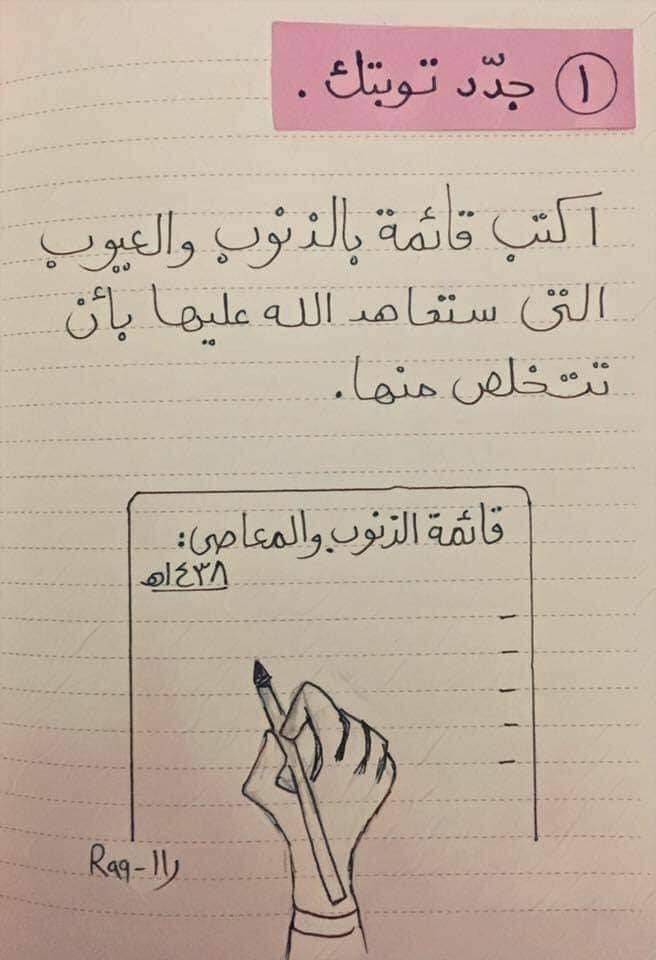 ١ جدّد توبتك .
اكتب قائمة بالذنوب والعيوب
التي ستعاهد الله عليها بأن
تتخلص منها.
قائمة الذنوب والمعاصي:
١٤٣٨هـ
-
-
-
-
-